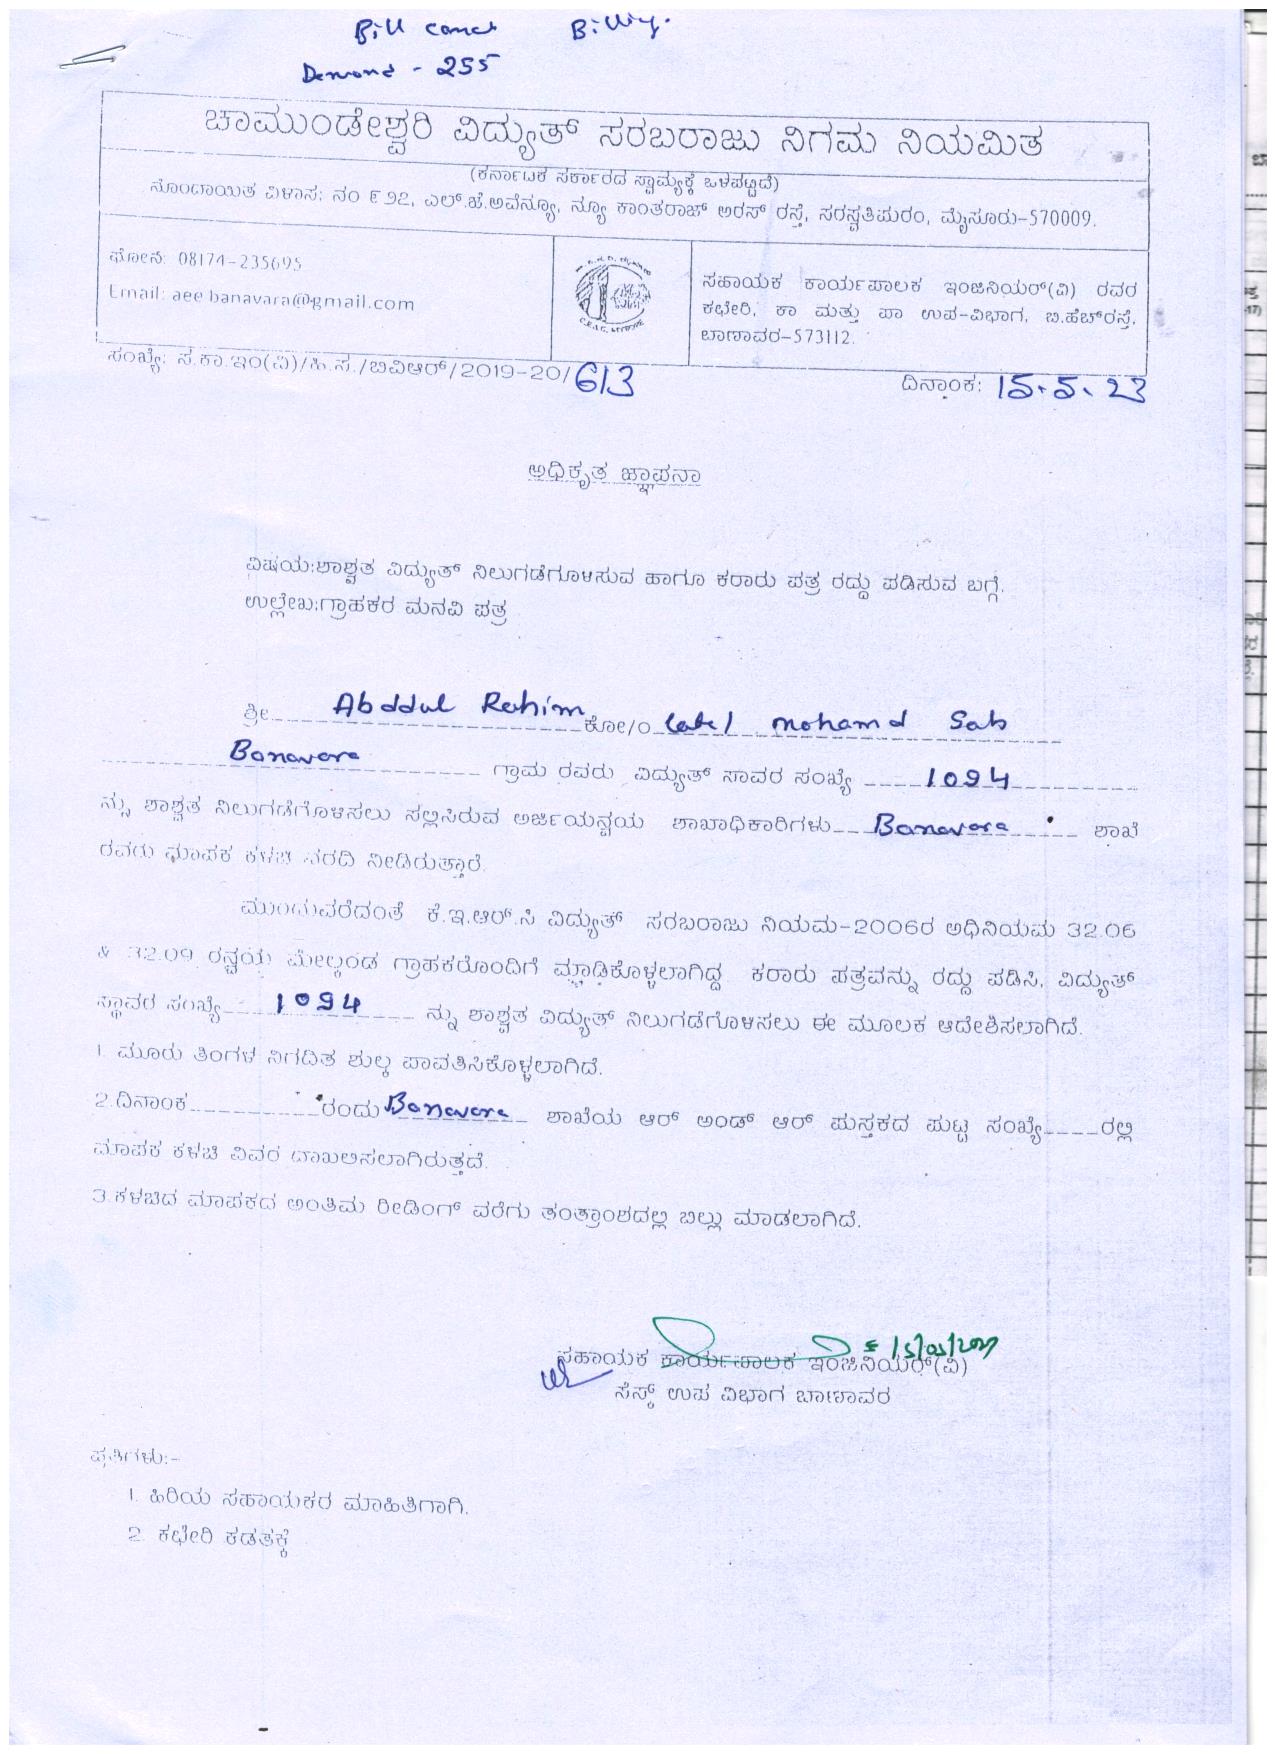 Bill Billing.
Demand - 255
ಚಾಮುಂಡೇಶ್ವರಿ ವಿದ್ಯುತ್ ಸರಬರಾಜು ನಿಗಮ ನಿಯಮಿತ
(ಕರ್ನಾಟಕ ಸರ್ಕಾರದ ಸ್ವಾಮ್ಯಕ್ಕೆ ಒಳಪಟ್ಟಿದೆ)
ನೊಂದಾಯಿತ ವಿಳಾಸ: ನಂ ೯೨೭, ಎಲ್.ಜೆ.ಅವೆನ್ಯೂ, ನ್ಯೂ ಕಾಂತರಾಜ್ ಅರಸ್ ರಸ್ತೆ, ಸರಸ್ವತಿಪುರಂ, ಮೈಸೂರು-570009.
ಫೋನ: 08174-235695
Email: aee.banavara@gmail.com
ಸಹಾಯಕ ಕಾರ್ಯಪಾಲಕ ಇಂಜಿನಿಯರ್(ವಿ) ರವರ
ಕಛೇರಿ, ಕಾ ಮತ್ತು ಪಾ ಉಪ-ವಿಭಾಗ, ಬಿ.ಹೆಚ್‌ರಸ್ತೆ,
ಬಾಣಾವರ-573112.
ಸಂಖ್ಯೆ: ಸ.ಕಾ.ಇಂ(ವಿ)/ಹಿ.ಸ./ಬಿವಿಆರ್/2019-20/613 ದಿನಾಂಕ: 15.5.23
ಅಧಿಕೃತ ಜ್ಞಾಪನಾ
ವಿಷಯ:ಶಾಶ್ವತ ವಿದ್ಯುತ್ ನಿಲುಗಡೆಗೊಳಿಸುವ ಹಾಗೂ ಕರಾರು ಪತ್ರ ರದ್ದು ಪಡಿಸುವ ಬಗ್ಗೆ.
ಉಲ್ಲೇಖ:ಗ್ರಾಹಕರ ಮನವಿ ಪತ್ರ
ಶ್ರೀ Abddul Rahim ಕೋ/o Late/ Mohamd Sab
Banavara ಗ್ರಾಮ ರವರು ವಿದ್ಯುತ್ ಸಾವರ ಸಂಖ್ಯೆ 1094
ನ್ನು ಶಾಶ್ವತ ನಿಲುಗಡೆಗೊಳಿಸಲು ಸಲ್ಲಿಸಿರುವ ಅರ್ಜಿಯನ್ವಯ ಶಾಖಾಧಿಕಾರಿಗಳು Banavara ಶಾಖೆ
ರವರು ಮಾಪಕ ಕಳಚಿ ವರದಿ ನೀಡಿರುತ್ತಾರೆ.
ಮುಂದುವರೆದಂತೆ ಕೆ.ಇ.ಆರ್.ಸಿ ವಿದ್ಯುತ್ ಸರಬರಾಜು ನಿಯಮ-2006ರ ಅಧಿನಿಯಮ 32.06
& 32.09 ರನ್ವಯ ಮೇಲ್ಕಂಡ ಗ್ರಾಹಕರೊಂದಿಗೆ ಮಾಡಿಕೊಳ್ಳಲಾಗಿದ್ದ ಕರಾರು ಪತ್ರವನ್ನು ರದ್ದು ಪಡಿಸಿ, ವಿದ್ಯುತ್
ಸ್ಥಾವರ ಸಂಖ್ಯೆ 1094 ನ್ನು ಶಾಶ್ವತ ವಿದ್ಯುತ್ ನಿಲುಗಡೆಗೊಳಿಸಲು ಈ ಮೂಲಕ ಆದೇಶಿಸಲಾಗಿದೆ.
1. ಮೂರು ತಿಂಗಳ ನಿಗದಿತ ಶುಲ್ಕ ಪಾವತಿಸಿಕೊಳ್ಳಲಾಗಿದೆ.
2.ದಿನಾಂಕ ರಂದು Banavara ಶಾಖೆಯ ಆರ್ ಅಂಡ್ ಆರ್ ಪುಸ್ತಕದ ಪುಟ್ಟ ಸಂಖ್ಯೆ ರಲ್ಲಿ
ಮಾಪಕ ಕಳಚಿ ವಿವರ ದಾಖಲಿಸಲಾಗಿರುತ್ತದೆ.
3.ಕಳಚಿದ ಮಾಪಕದ ಅಂತಿಮ ರೀಡಿಂಗ್ ವರೆಗು ತಂತ್ರಾಂಶದಲ್ಲಿ ಬಿಲ್ಲು ಮಾಡಲಾಗಿದೆ.
ಸಹಾಯಕ ಕಾರ್ಯಪಾಲಕ ಇಂಜಿನಿಯರ್(ವಿ)
ಸೆಸ್ಕ್ ಉಪ ವಿಭಾಗ ಬಾಣಾವರ
ಪ್ರತಿಗಳು:-
1. ಹಿರಿಯ ಸಹಾಯಕರ ಮಾಹಿತಿಗಾಗಿ.
2. ಕಛೇರಿ ಕಡತಕ್ಕೆ